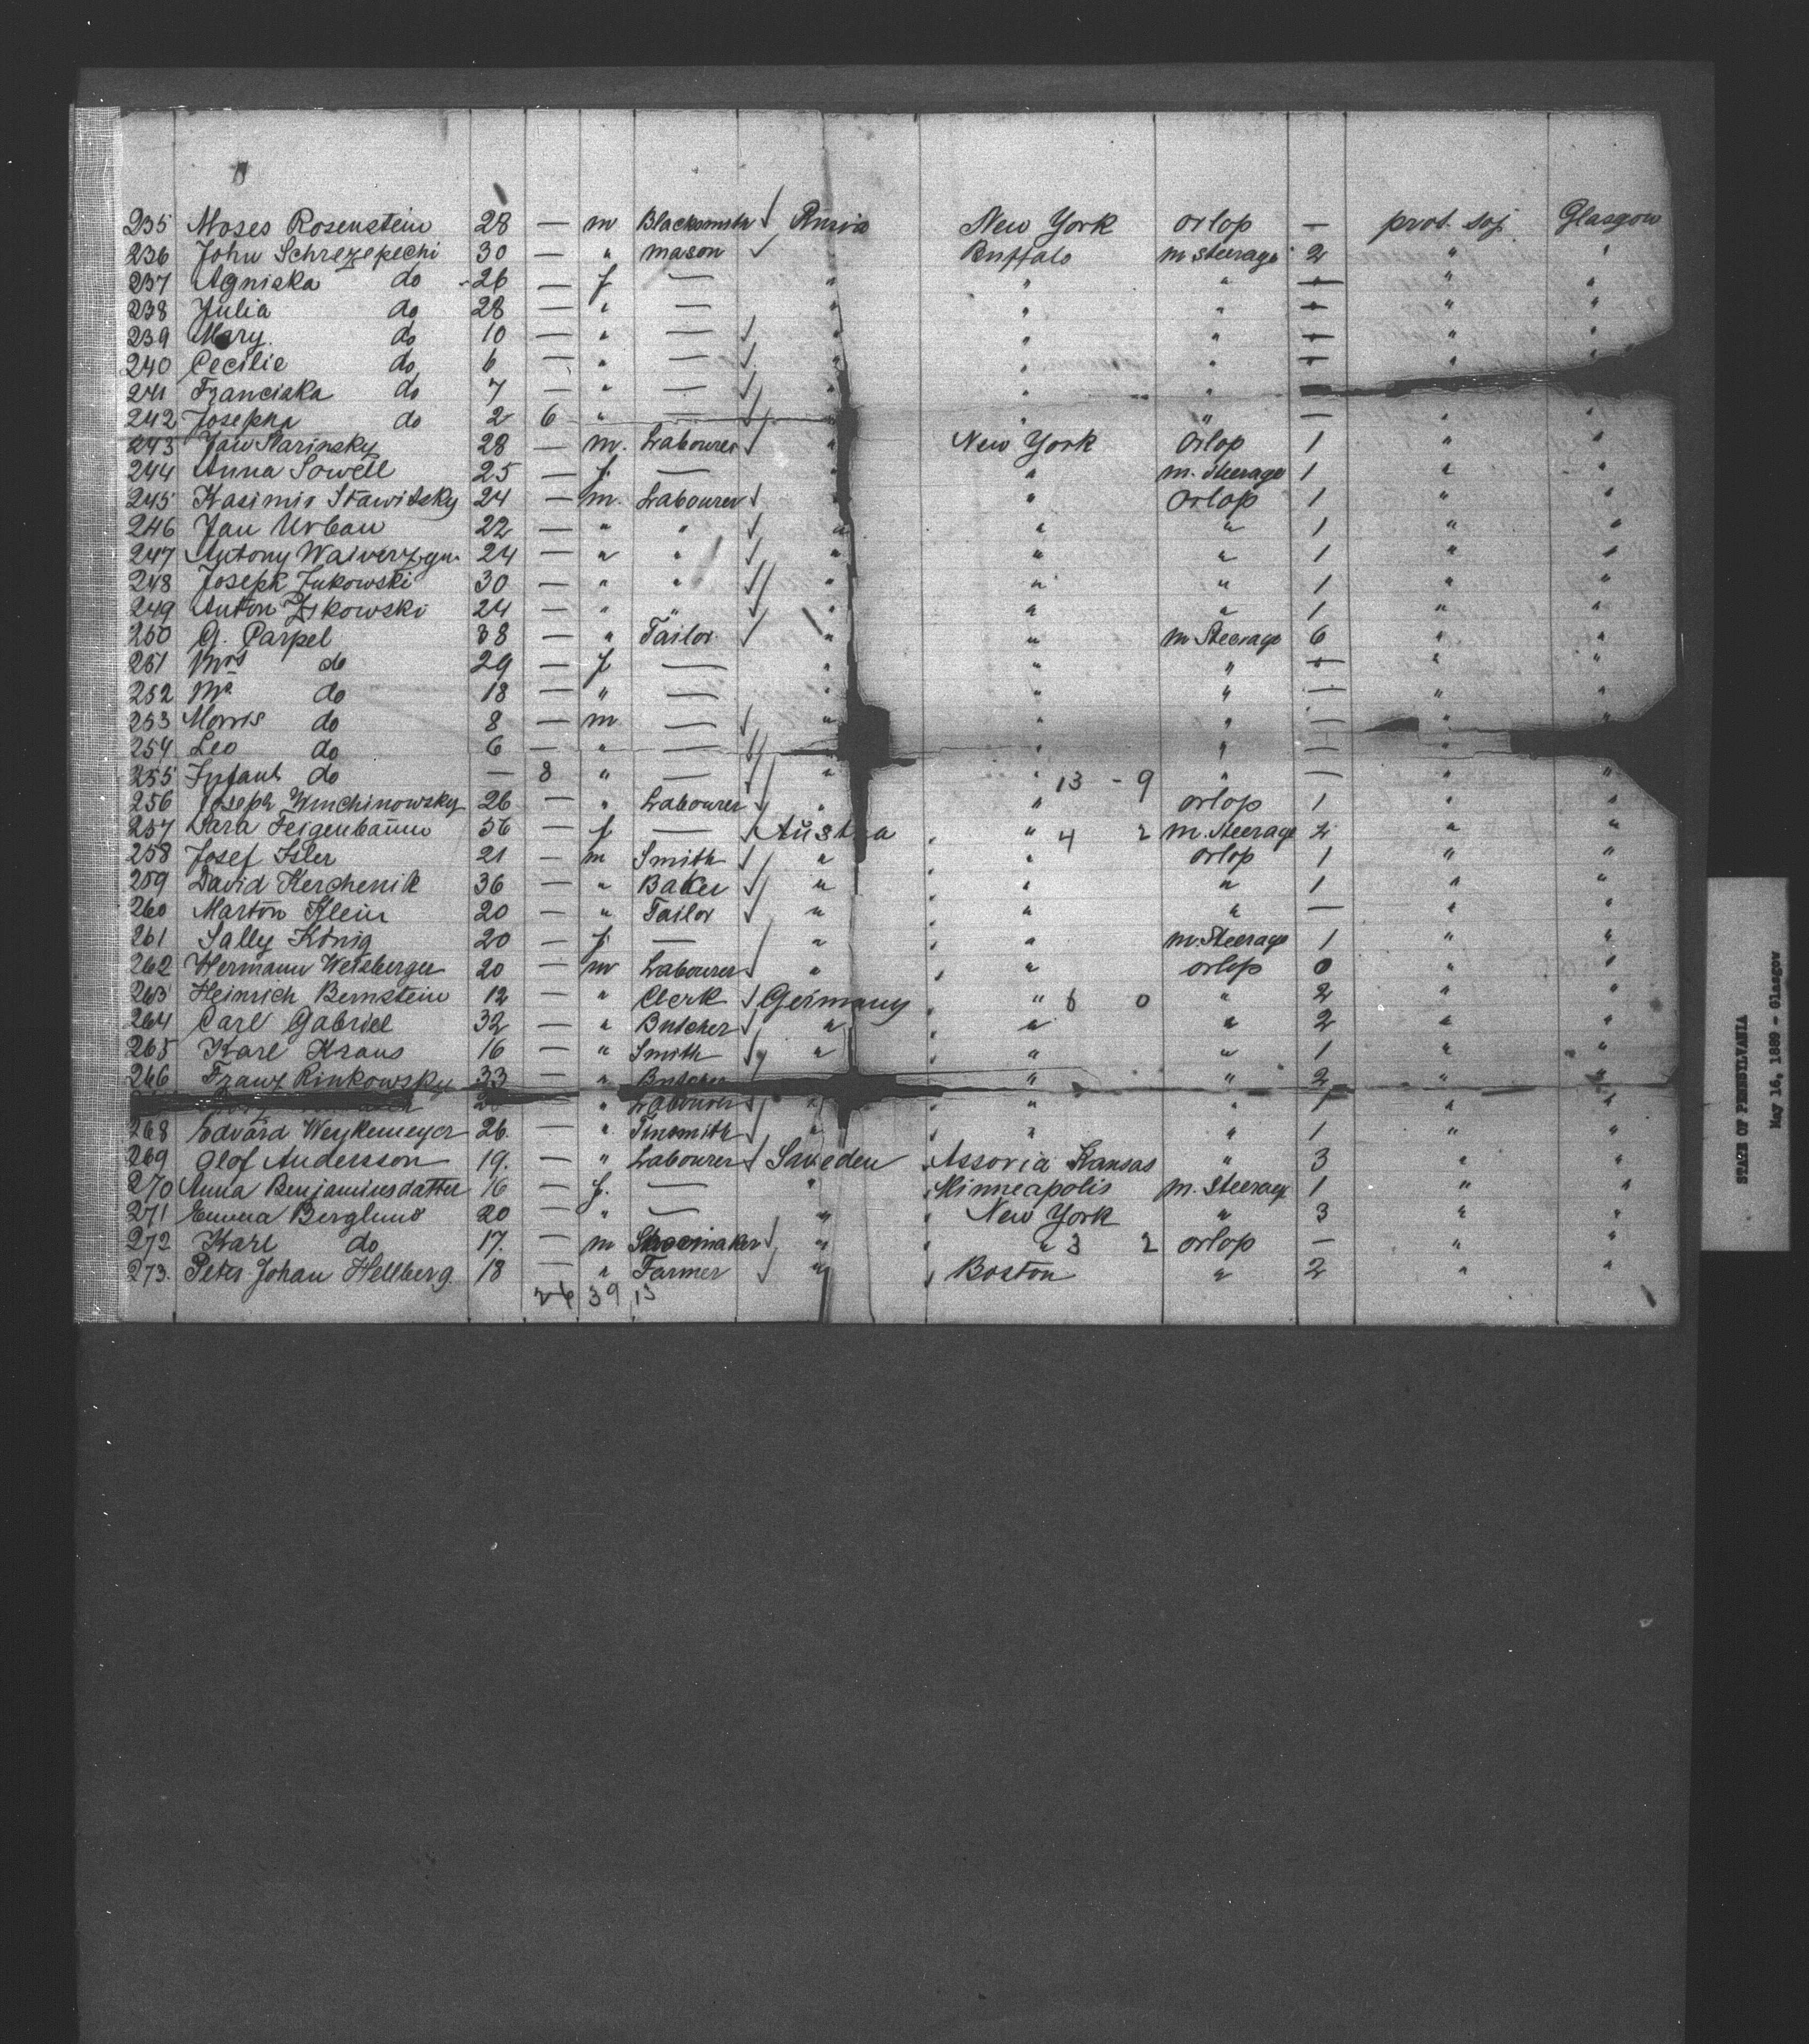 235 Moses Rosenstein 28 — m Blacksmith ✓ Russia New York orlop — prot. soj. Glasgow
236 John Schrezepechi 30 — " mason ✓ Buffalo m steerage 2 " "
237 Agniska do 26 — f — " " " — " "
238 Julia do 28 — " — " " " — " "
239 Mary. do 10 — " — ✓ " " " — " "
240 Cecilie do 6 — " — ✓ " " " — " "
241 Franciska do 7 — " — ✓ " " " — "
242 Josepha do 2 6 " — ✓ " " " — " "
243 Jaw Marinsky 28 — m. Labourer ✓ " New York Orlop 1 " "
244 Anna Sowell 25 — f. — " " m. Steerage 1 " "
245 Kasimir Stawitsky 24 — m. Labourer ✓ " " Orlop 1 " "
246 Jan Urban 22 — " " ✓ " " " 1 " "
247 Antony 24 — " " ✓ " " " 1 " "
248 Joseph Jukowski 30 — " " ✓ " " " 1 " "
249 Anton Zikowski 24 — " " ✓ " " " 1 " "
250 G. Parpel 38 — " Tailor ✓ " " m Steerage 6 " "
251 Mrs do 29 — f — " " " — " "
252 Ma do 18 — " — " " " — " "
253 Morris do 8 — m — ✓ " " " — " "
254 Leo do 6 — " — ✓ " " —  "
255 Infant do — 8 " — ✓ " " 13 - 9 " — " "
256 Joseph Winchinowsky 26 — " Labourer ✓ " " orlop 1 " "
257 Sara Feigenbaum 56 — f — ✓ Austria " 4 2 m. Steerage 2 " "
258 Josef Isler 21 — m Smith ✓ " " orlop 1 " "
259 David Kerchenik 36 — " Baker ✓ " " " 1 " "
260 Marton Klein 20 — " Tailor ✓ " " " — " "
261 Sally König 20 — f. — " " m. Steerage 1 " "
262 Hermann Weisberger 20 — m Labourer ✓ " " orlop 0 " "
263 Heinrich Bernstein 12 — " Clerk ✓ Germany " 6 0 " 2 " "
264 Carl Gabriel 32 — " Butcher ✓ " " " 2 " "
265 Karl Kraus 16 — " Smith ✓ " " " 1 " "
266 Franz Rinkowsky 33 — " Butcher " " 2 " "
" Labourer ✓ " " " 1 " "
268 Edvard Weykemeyer 26. — " Tinsmith ✓ " " " 1 " "
269 Olof Andersson 19. — " Labourer ✓ Sweden Assoria Kansas " 3 " "
270 Anna Benjaminsdatter 16 — f. — " Minneapolis m. Steerage 1 " "
271 Emma Berglund 20 — " — " New York " 3 " "
272 Karl do 17. — m Shoemaker ✓ " " 3 2 orlop — " "
273. Peter Johan Hellberg. 18 — " Farmer ✓ " Boston " 2 " "
26 39 13
STATE OF PENNSILVANIA
May 16, 1889 - Glasgov